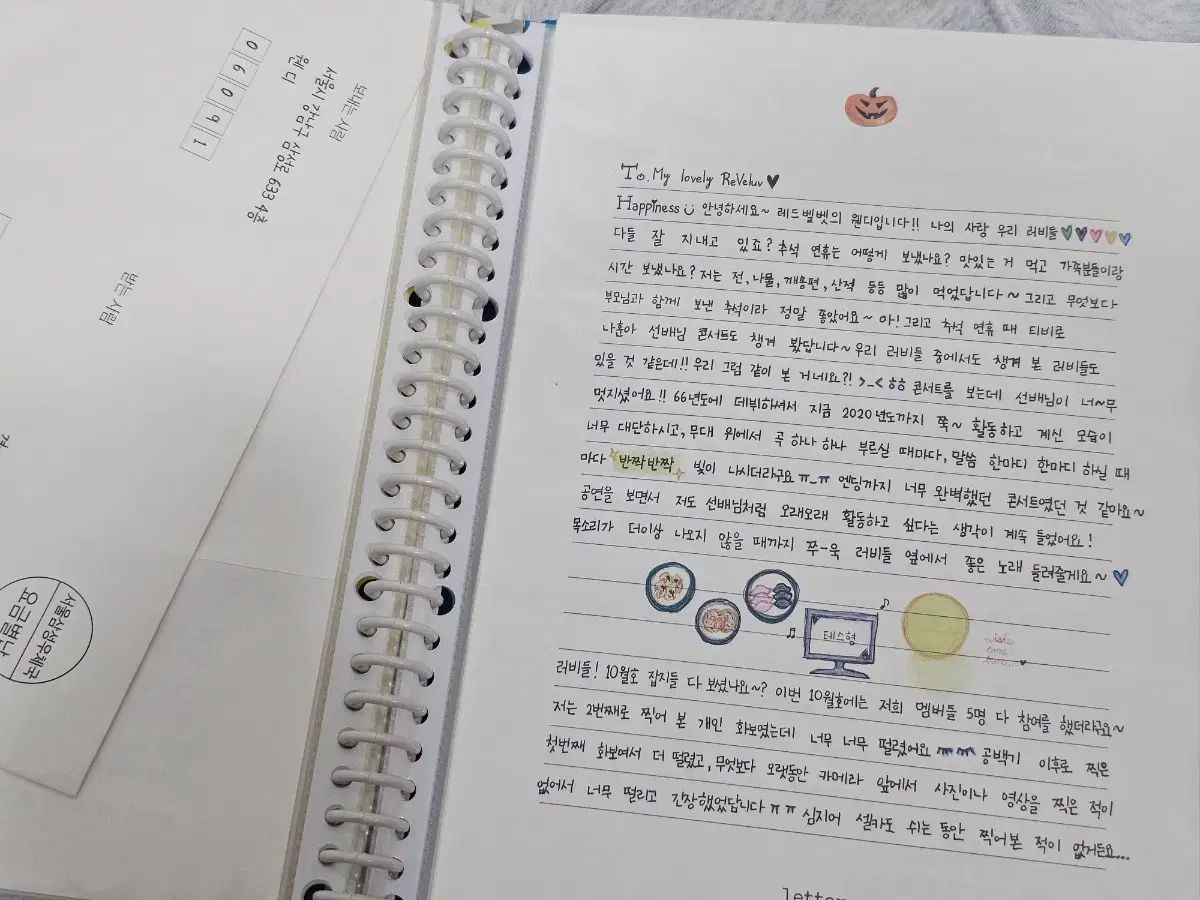 보내는 사람
서울시 강남구 삼성로 633 4층
웬디
0 6 0 9 1
받는 사람
서울삼성우체국
요금별납
To. My lovely ReVeluv♥
Happiness 안녕하세요~ 레드벨벳의 웬디입니다!! 나의 사랑 우리 러비들♥♥♥♥♥
다들 잘 지내고 있죠? 추석 연휴는 어떻게 보냈나요? 맛있는 거 먹고 가족분들이랑
시간 보냈나요? 저는 전, 나물, 깨송편, 산적 등등 많이 먹었답니다~ 그리고 무엇보다
부모님과 함께 보낸 추석이라 정말 좋았어요~ 아! 그리고 추석 연휴 때 티비로
나훈아 선배님 콘서트도 챙겨 봤답니다~ 우리 러비들 중에서도 챙겨 본 러비들도
있을 것 같은데!! 우리 그럼 같이 본 거네요?! >_< ㅎㅎ 콘서트를 보는데 선배님이 너~무
멋지셨어요!! 66년도에 데뷔하셔서 지금 2020년도까지 쭉~ 활동하고 계신 모습이
너무 대단하시고, 무대 위에서 곡 하나 하나 부르실 때마다, 말씀 한마디 한마디 하실 때
마다 반짝반짝 빛이 나시더라구요 ㅠ_ㅠ 엔딩까지 너무 완벽했던 콘서트였던 것 같아요~
공연을 보면서 저도 선배님처럼 오래오래 활동하고 싶다는 생각이 계속 들었어요!
목소리가 더이상 나오지 않을 때까지 쭈-욱 러비들 옆에서 좋은 노래 들려줄게요~♥
테스형
러비들! 10월호 잡지들 다 보셨나요~? 이번 10월호에는 저희 멤버들 5명 다 참여를 했더라구요~
저는 2번째로 찍어 본 개인 화보였는데 너무 너무 떨렸어요 공백기 이후로 찍은
첫번째 화보여서 더 떨렸고, 무엇보다 오랫동안 카메라 앞에서 사진이나 영상을 찍은 적이
없어서 너무 떨리고 긴장했었답니다ㅠㅠ 심지어 셀카도 쉬는 동안 찍어본 적이 없거든요...
letter